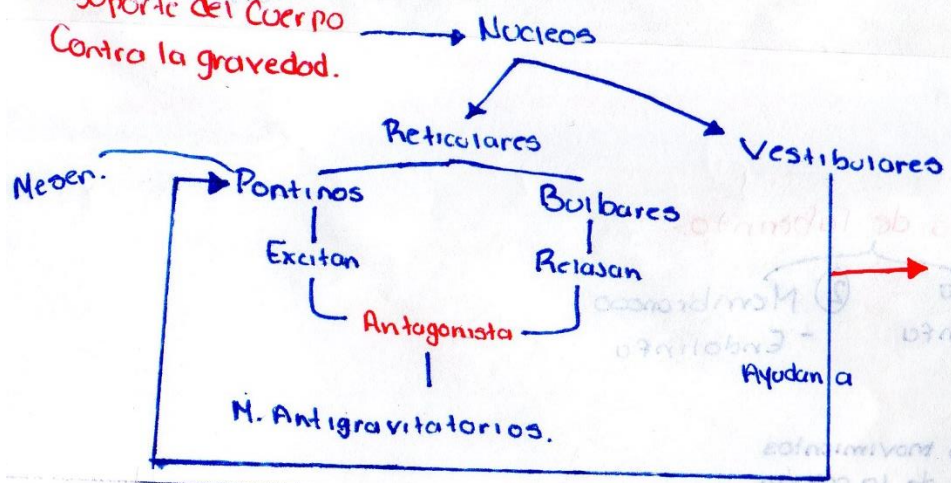 Soporte del Cuerpo
Contra la gravedad.
Nucleos
Reticulares
Vestibulares
Mesen.
Pontinos
Bulbares
Excitan
Relasan
Antagonista
Ayudan a
M. Antigravitatorios.
② Membranoso
- Endolinfa